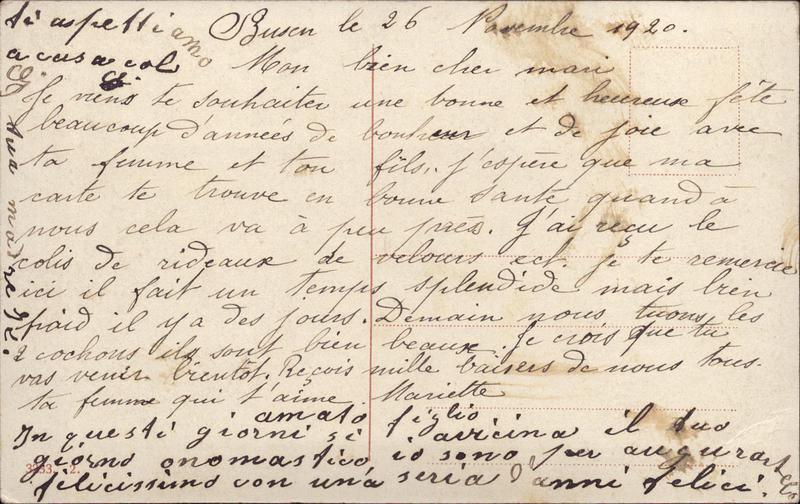 Busca le 26 Novembre 1920.
Mon bien cher mari
Je viens te souhaiter une bonne et heureuse fête
beaucoup d'années de bonheur et de joie avec
ta femme et ton fils, j'espère que ma
carte te trouve en bonne santé quand à
nous cela va à peu près. J'ai reçu le
colis de rideaux de velours ect. je te remercie
ici il fait un temps splendide mais bien
froid il y a des jours. Demain nous tuons les
2 cochons ils sont bien beaux. Je crois que tu
vas venir bientôt. Reçois mille baisers de nous tous.
ta femme qui t'aime. Mariette
amato figlio
In questi giorni si avicina il tuo
giorno onomastico io sono per augurartelo
felicissimo con una seria d'anni felici.
ti aspettiamo
a casa col
tua madre
3253. 2.